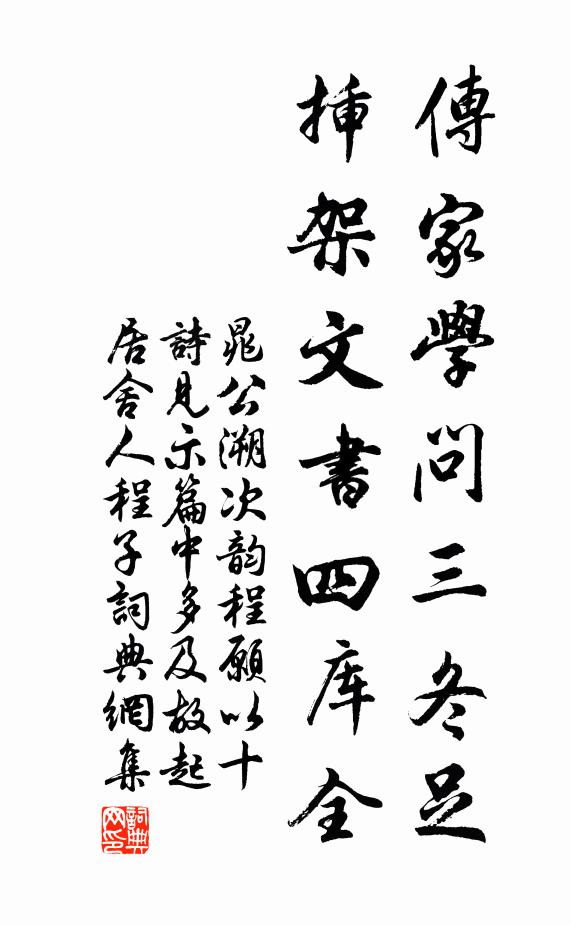 傳家學問三冬足
挿架文書四库全
晁公溯次韵程願以十
詩見示篇中多及故起
居舍人程子詞典網集
詞典
网印